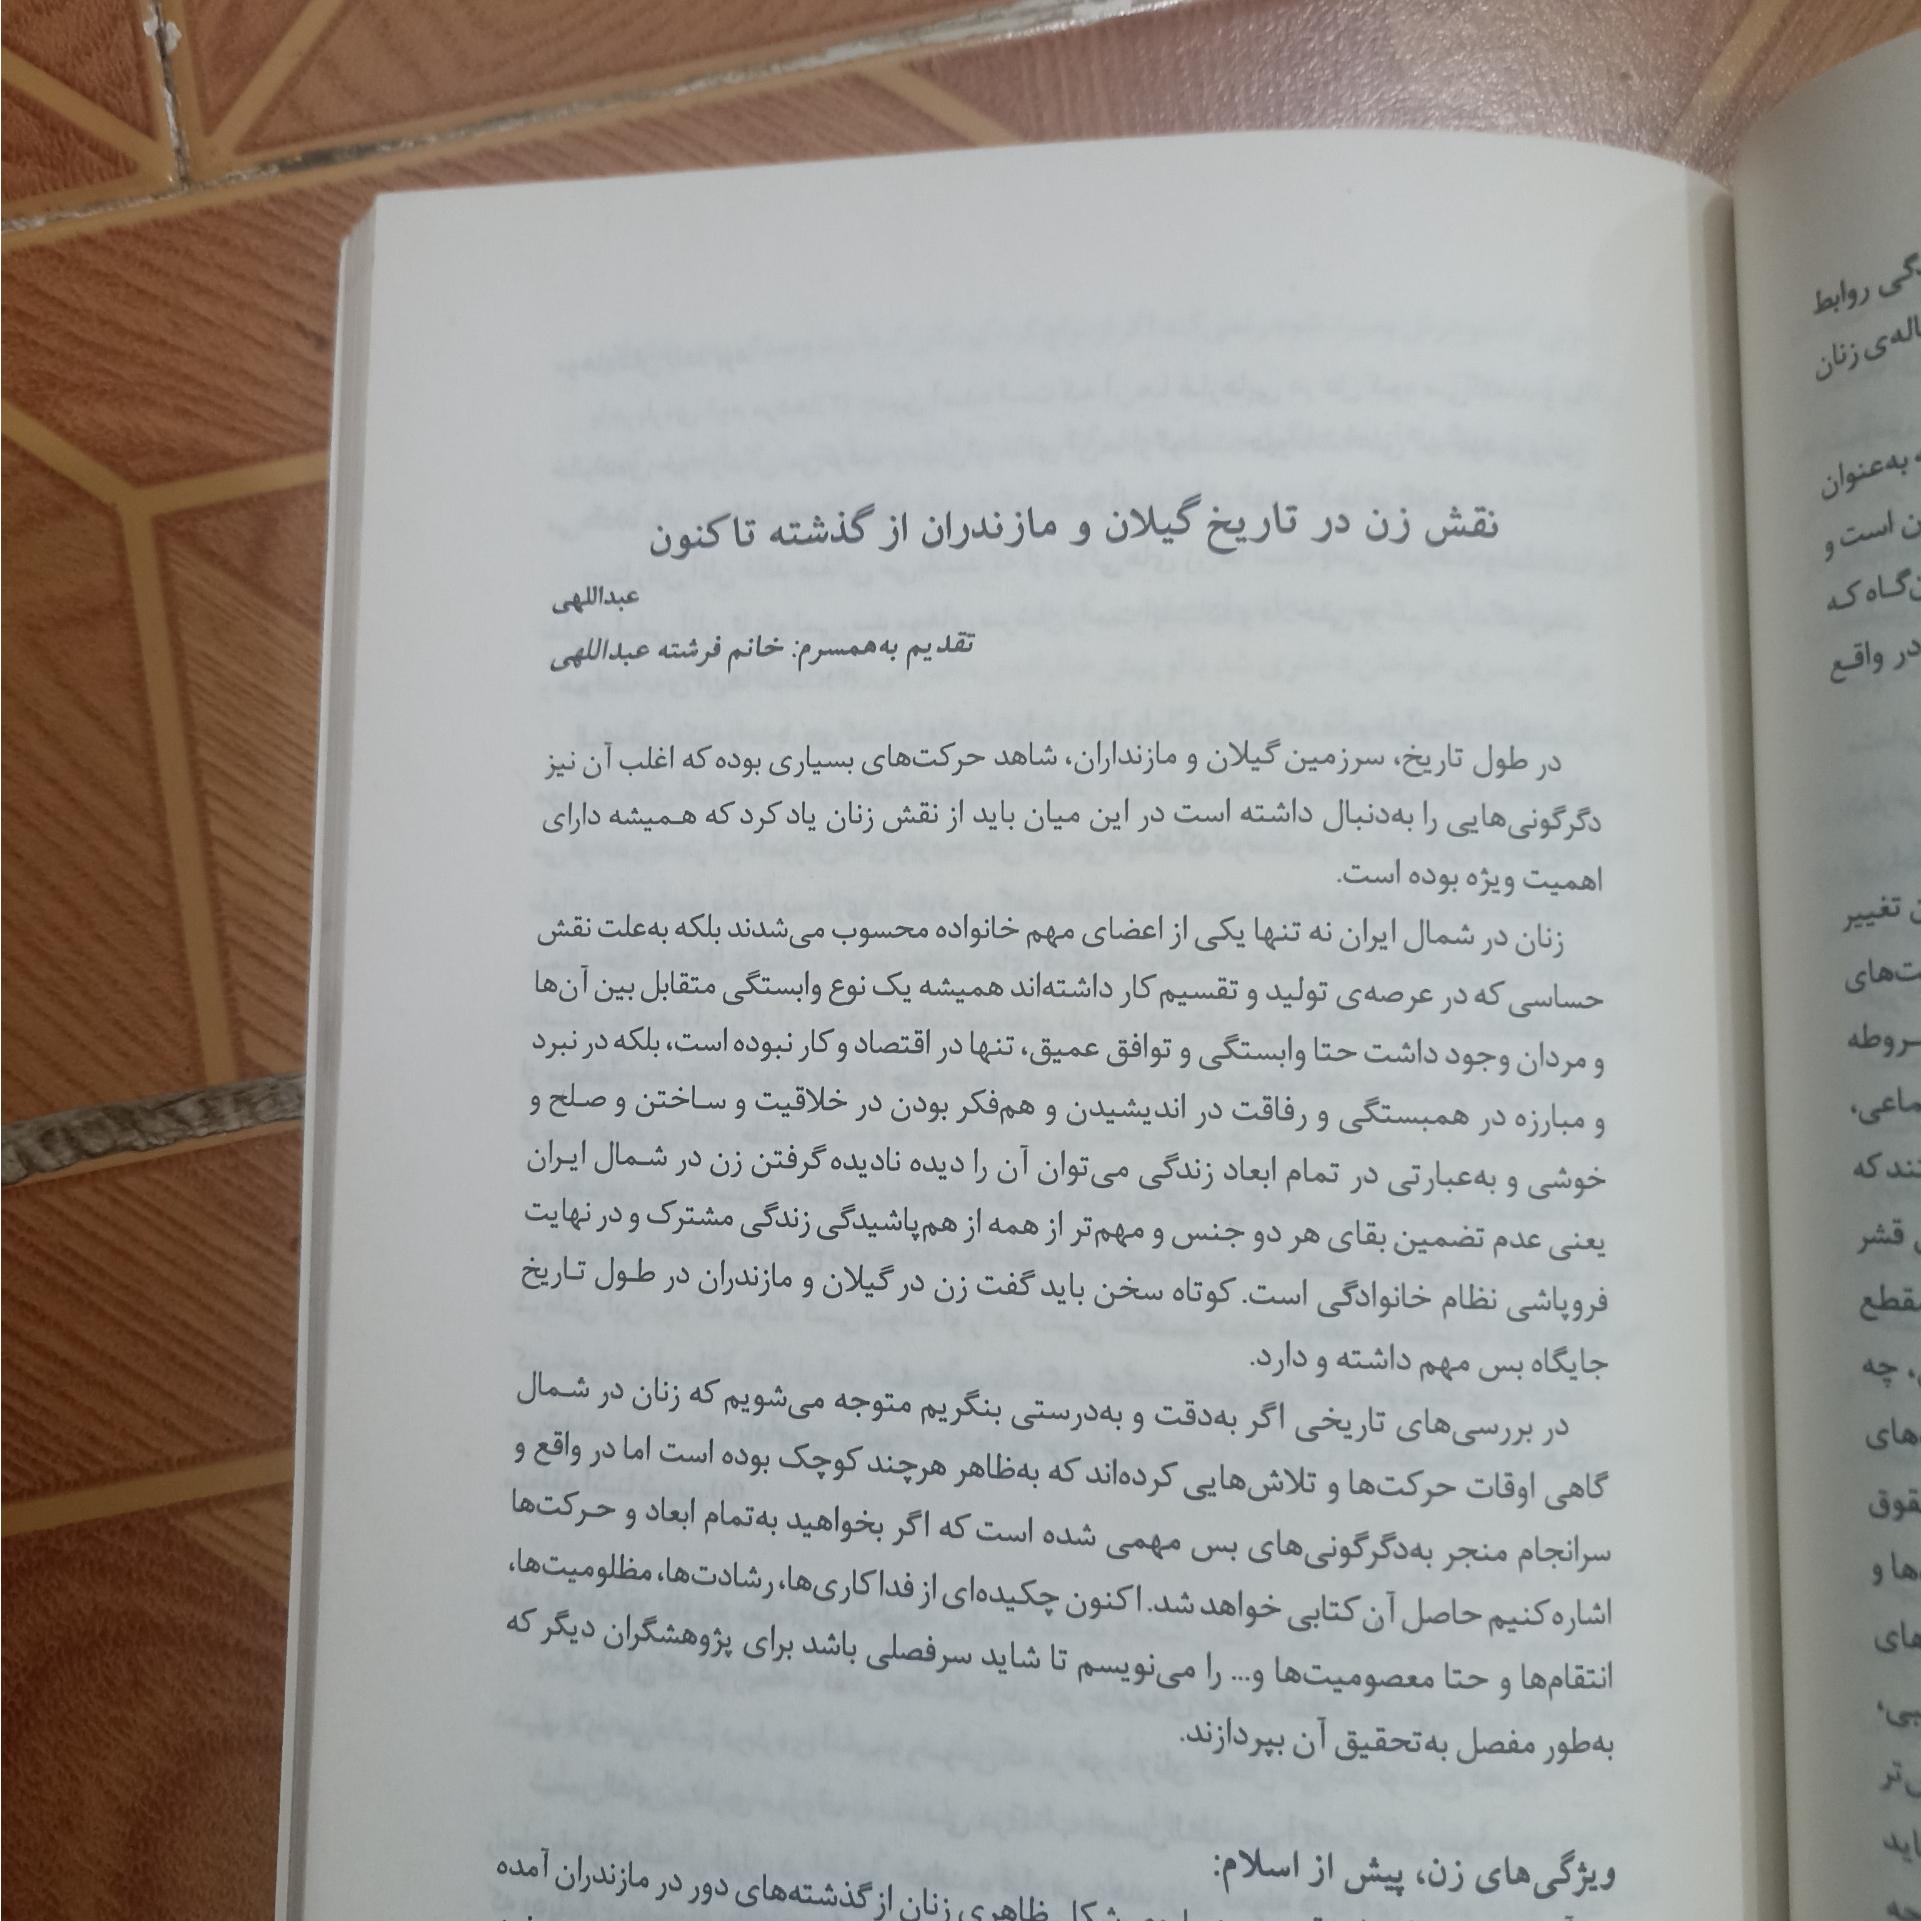 نقش زن در تاریخ گیلان و مازندران از گذشته تاکنون
عبداللهی
تقدیم به‌همسرم: خانم فرشته عبداللهی
در طول تاریخ، سرزمین گیلان و مازنداران، شاهد حرکت‌های بسیاری بوده که اغلب آن نیز
دگرگونی‌هایی را به‌دنبال داشته است در این میان باید از نقش زنان یاد کرد که همیشه دارای
اهمیت ویژه بوده است.
زنان در شمال ایران نه تنها یکی از اعضای مهم خانواده محسوب می‌شدند بلکه به‌علت نقش
حساسی که در عرصه‌ی تولید و تقسیم کار داشته‌اند همیشه یک نوع وابستگی متقابل بین آن‌ها
و مردان وجود داشت حتا وابستگی و توافق عمیق، تنها در اقتصاد و کار نبوده است، بلکه در نبرد
و مبارزه در همبستگی و رفاقت در اندیشیدن و هم‌فکر بودن در خلاقیت و ساختن و صلح و
خوشی و به‌عبارتی در تمام ابعاد زندگی می‌توان آن را دیده نادیده گرفتن زن در شمال ایران
یعنی عدم تضمین بقای هر دو جنس و مهم‌تر از همه از هم‌پاشیدگی زندگی مشترک و در نهایت
فروپاشی نظام خانوادگی است. کوتاه سخن باید گفت زن در گیلان و مازندران در طول تاریخ
جایگاه بس مهم داشته و دارد.
در بررسی‌های تاریخی اگر به‌دقت و به‌درستی بنگریم متوجه می‌شویم که زنان در شمال
گاهی اوقات حرکت‌ها و تلاش‌هایی کرده‌اند که به‌ظاهر هرچند کوچک بوده است اما در واقع و
سرانجام منجر به‌دگرگونی‌های بس مهمی شده است که اگر بخواهید به‌تمام ابعاد و حرکت‌ها
اشاره کنیم حاصل آن کتابی خواهد شد. اکنون چکیده‌ای از فداکاری‌ها، رشادت‌ها، مظلومیت‌ها،
انتقام‌ها و حتا معصومیت‌ها و... را می‌نویسم تا شاید سرفصلی باشد برای پژوهشگران دیگر که
به‌طور مفصل به‌تحقیق آن بپردازند.
ویژگی‌های زن، پیش از اسلام:
شکل ظاهری زنان از گذشته‌های دور در مازندران آمده
روابط
زنان
به‌عنوان
است و
که
در واقع
تغییر
که
قشر
چه